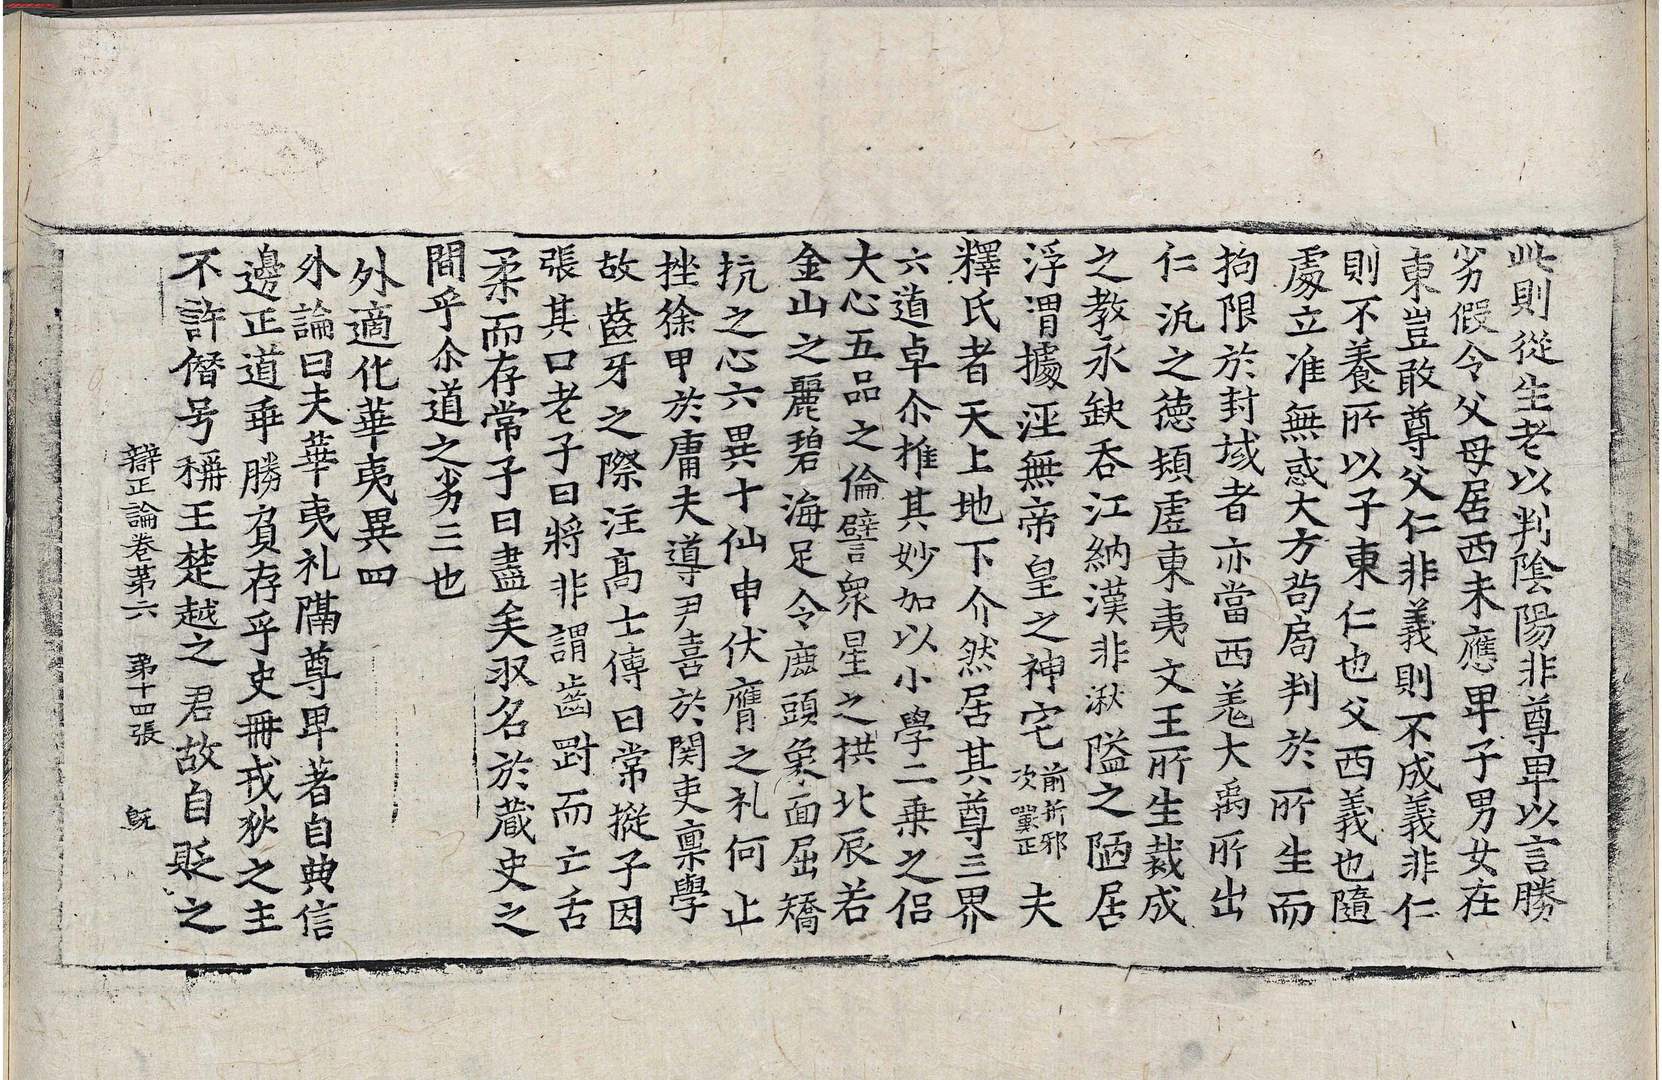 此則從生老以判陰陽非尊卑以言勝
劣假令父母居西未應卑子男女在
東豈敢尊父仁非義則不成義非仁
則不養所以子東仁也父西義也隨
處立准無惑大方茍局判於所生而
拘限於封域者亦當西羗大禹所出
仁汎之德頓虛東夷文王所生裁成
之教永缺吞江納漢非湫隘之陋居
浮渭據涇無帝皇之神宅前折邪次嘆正夫
釋氏者天上地下介然居其尊三界
六道卓尒推其妙加以小學二乗之侣
大心五品之倫譬衆星之拱北辰若
金山之麗碧海足令鹿頭象面屈矯
抗之心六異十仙申伏膺之礼何止
挫徐甲於庸夫導尹喜於関吏稟學
故齒牙之際注髙士傳曰常摐子因
張其口老子曰將非謂齒㓻而亡舌
柔而存常子曰盡矣㕛名於蔵史之
間乎尒道之劣三也
外適化華夷異四
外論曰夫華夷礼隔尊卑著自典信
邊正道乖勝負存乎史冊戎狄之主
不許僭号稱王楚越之君故自貶之
辯正論卷第六 第十四張 旣